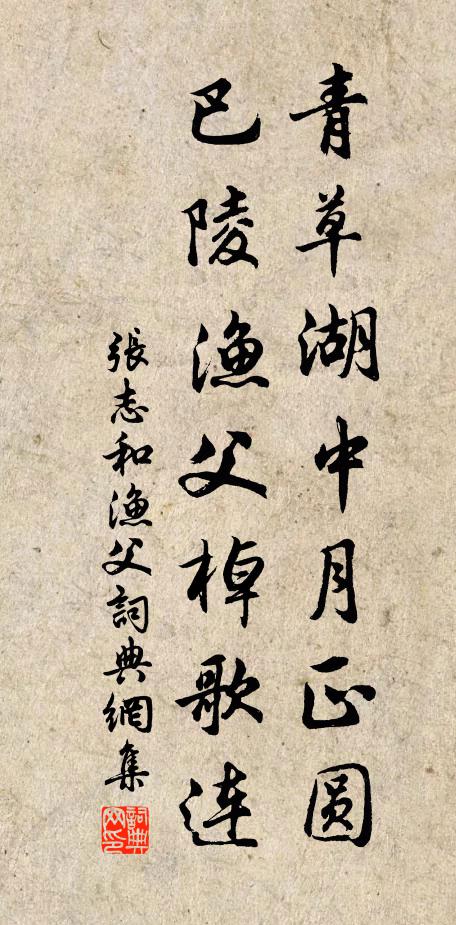 青草湖中月正圆
巴陵渔父棹歌连
張志和渔父詞典網集
詞典网印